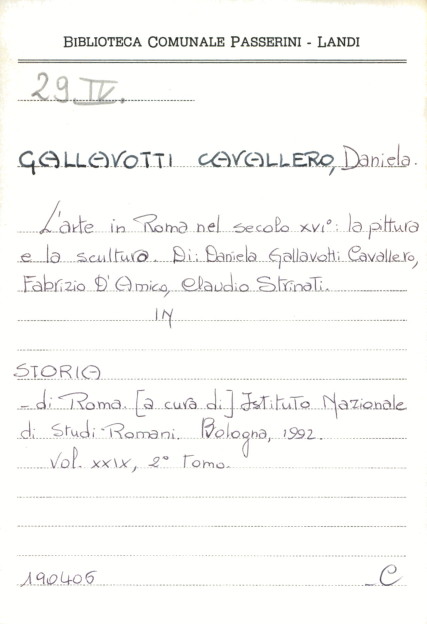 BIBLIOTECA COMUNALE PASSERINI - LANDI
29.IV.
GALLAVOTTI CAVALLERO, Daniela.
L'arte in Roma nel secolo XVI°: la pittura
e la scultura. Di: Daniela Gallavotti Cavallero,
Fabrizio D'Amico, Claudio Strinati.
IN
STORIA
- di Roma. [a cura di] Istituto Nazionale
di Studi Romani. Bologna, 1992.
Vol. XXIX, 2° Tomo.
190406 C